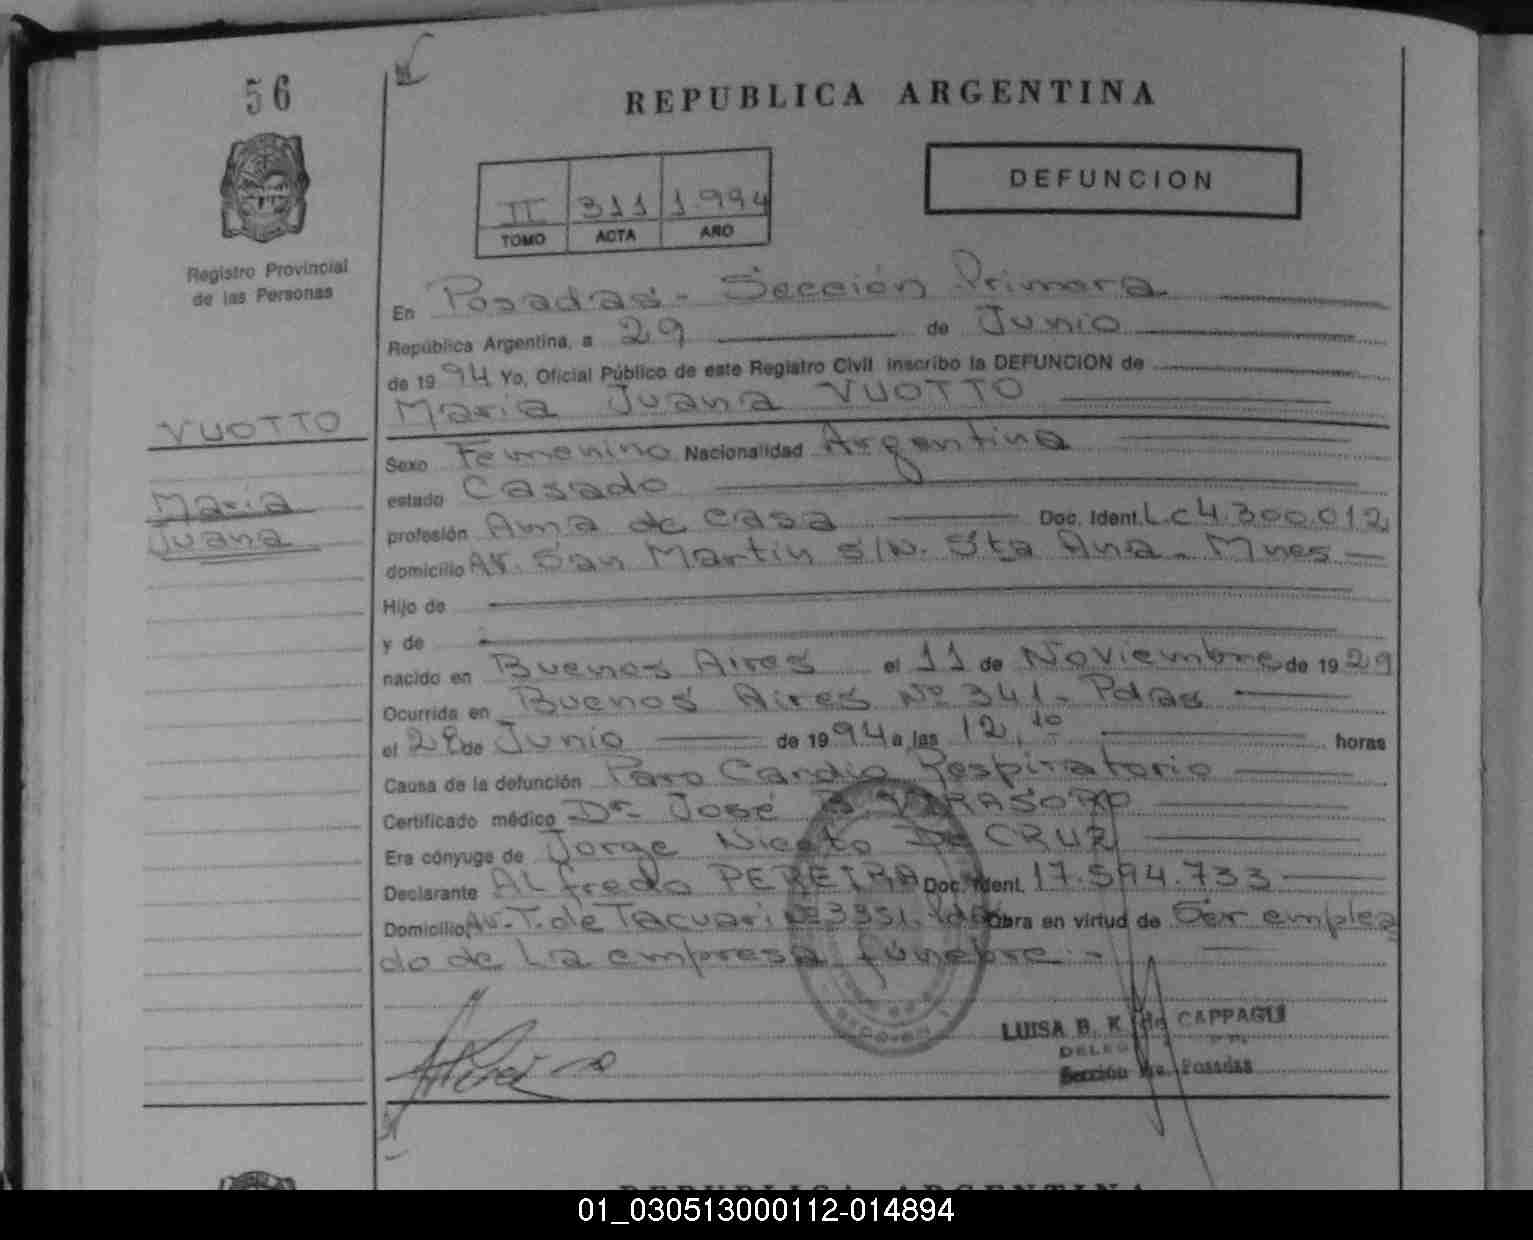 56
REPUBLICA ARGENTINA
II 311 1.994
TOMO ACTA AÑO
DEFUNCION
Registro Provincial
de las Personas
En Posadas - Sección Primera
República Argentina, a 29 de Junio
de 1994 Yo, Oficial Público de este Registro Civil inscribo la DEFUNCION de
Maria Juana VUOTTO
VUOTTO
Maria
Juana
Sexo Femenino Nacionalidad Argentina
estado Casado
profesión Ama de casa Doc. Ident. L.C 4.300.012
domicilio Av. San Martin s/N. Sta Ana - Mnes
Hijo de
y de
nacido en Buenos Aires el 11 de Noviembre de 1929
Ocurrida en Buenos Aires Nº 341 - Pdas
el 28 de Junio de 1994 a las 12,10 horas
Causa de la defunción Paro Cardio Respiratorio
Certificado médico Dr. José VIRASORO
Era cónyuge de Jorge Niceto Da CRUZ
Declarante ALfredo PEREIRA Doc. Ident. 17.594.733
Domicilio Av. T. de Tacuari Nº 3351. Pdas Obra en virtud de Ser emplea
do de La empresa fúnebre. -
LUISA B. K. de CAPPAGLI
Sección 1ra. Posadas
REPUBLICA ARGENTINA
01_030513000112-014894